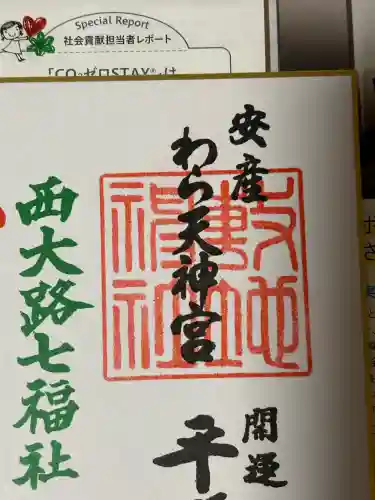 Special Report
社会貢献担当者レポート
「CO₂ゼロSTAY®」は
安産
わら天神宮
開運
平
西大路七福社